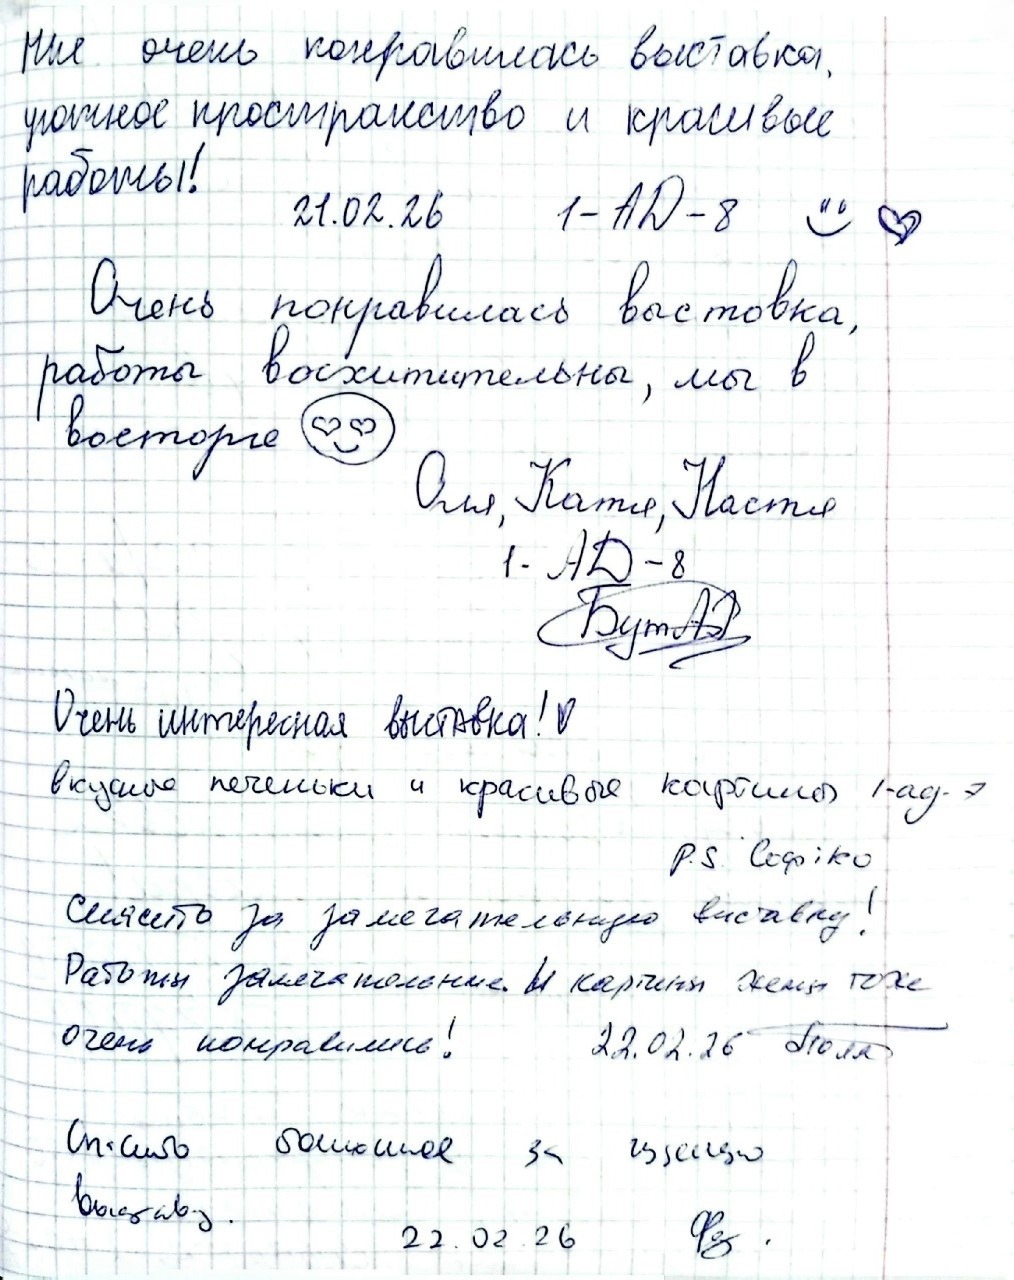 Мне очень понравилась выставка,
уютное пространство и красивые
работы!
21.02.26 1-AD-8
Очень понравилась выстовка,
работы восхитительны, мы в
восторге
Оля, Катя, Настя
1-AD-8
Очень интересная выставка!
вкусные печеньки и красивые картины 1-ад-7
P.S. Софiко
Спасибо за замечательную выставку!
Работы замечательные. И картины жены тоже
очень понравились! 22.02.26
Спасибо большое за
выставку.
22.02.26